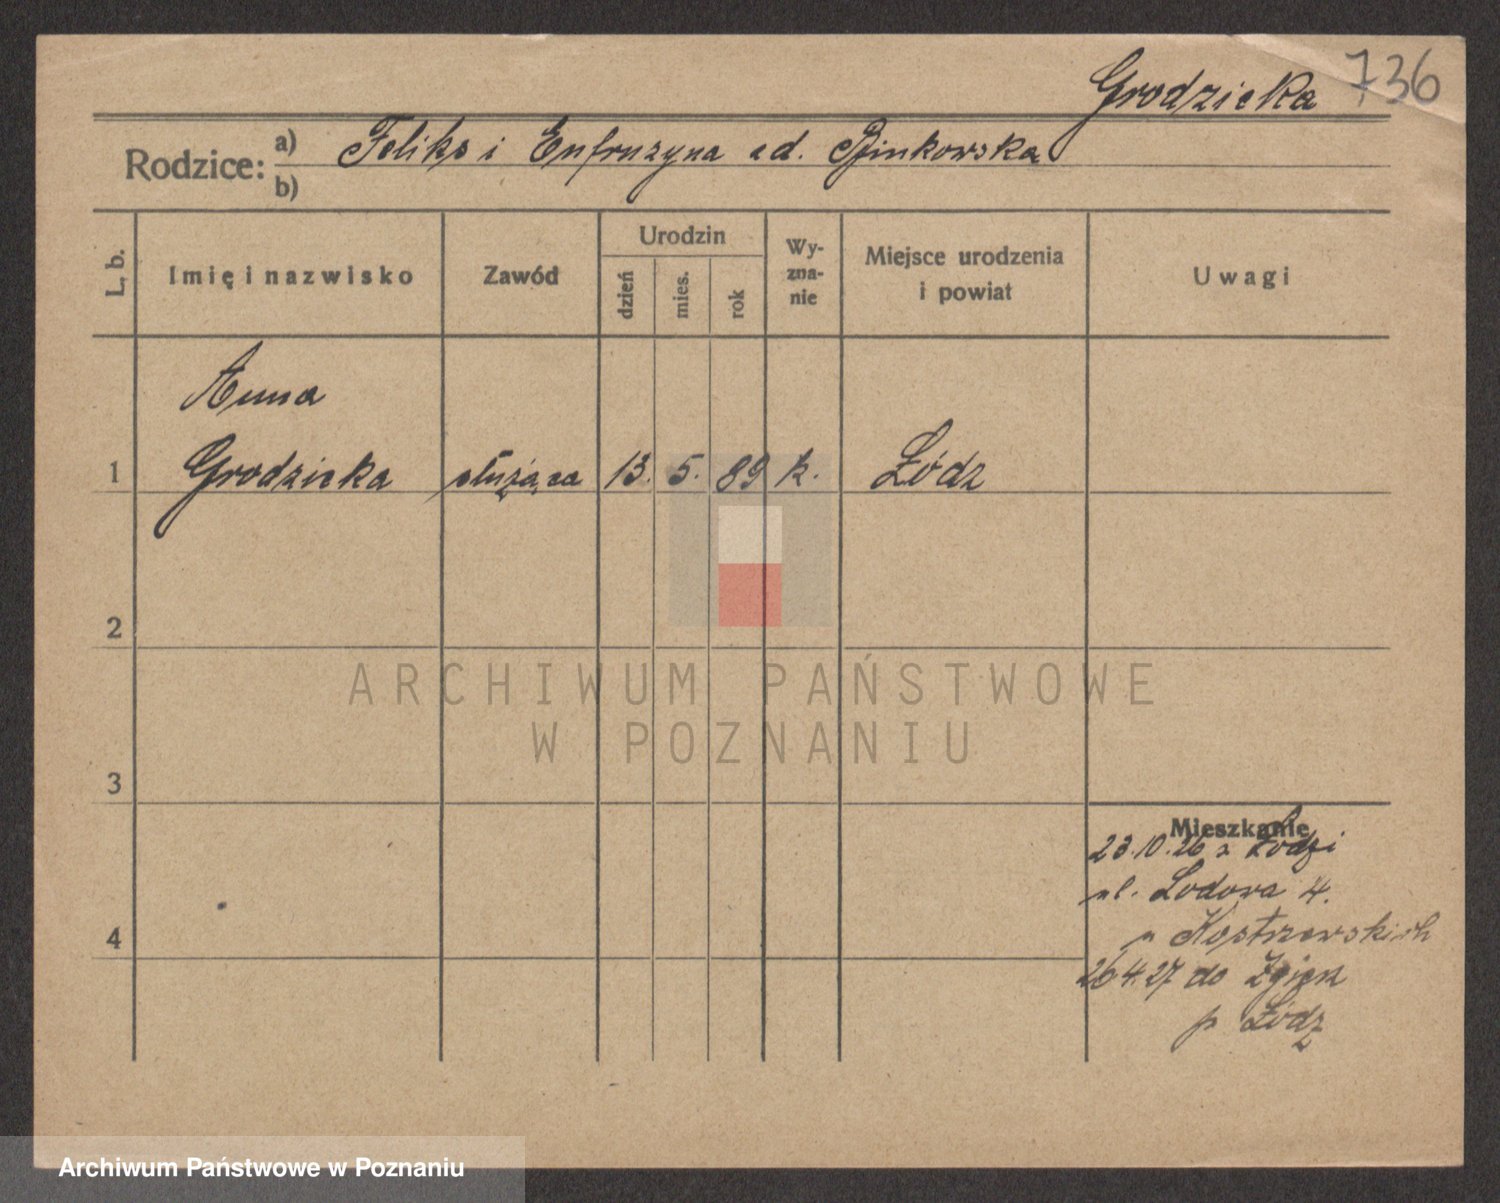 Grodzicka 736
Rodzice: a) Feliks i Eufruzyna zd. Bińkowska
b)
L. b.
Imię i nazwisko
Zawód
Urodzin
dzień
mies.
rok
Wy-
zna-
nie
Miejsce urodzenia
i powiat
Uwagi
Anna
1 Grodzicka służąca 13. 5. 89 k. Łódz
2
3
4
Mieszkanie
23.10.26 z Łodzi
ul. Lodowa 4.
u Kostrzewskich
26.4.27 do Zgierz
p Łódz
ARCHIWUM PAŃSTWOWE
W POZNANIU
Archiwum Państwowe w Poznaniu